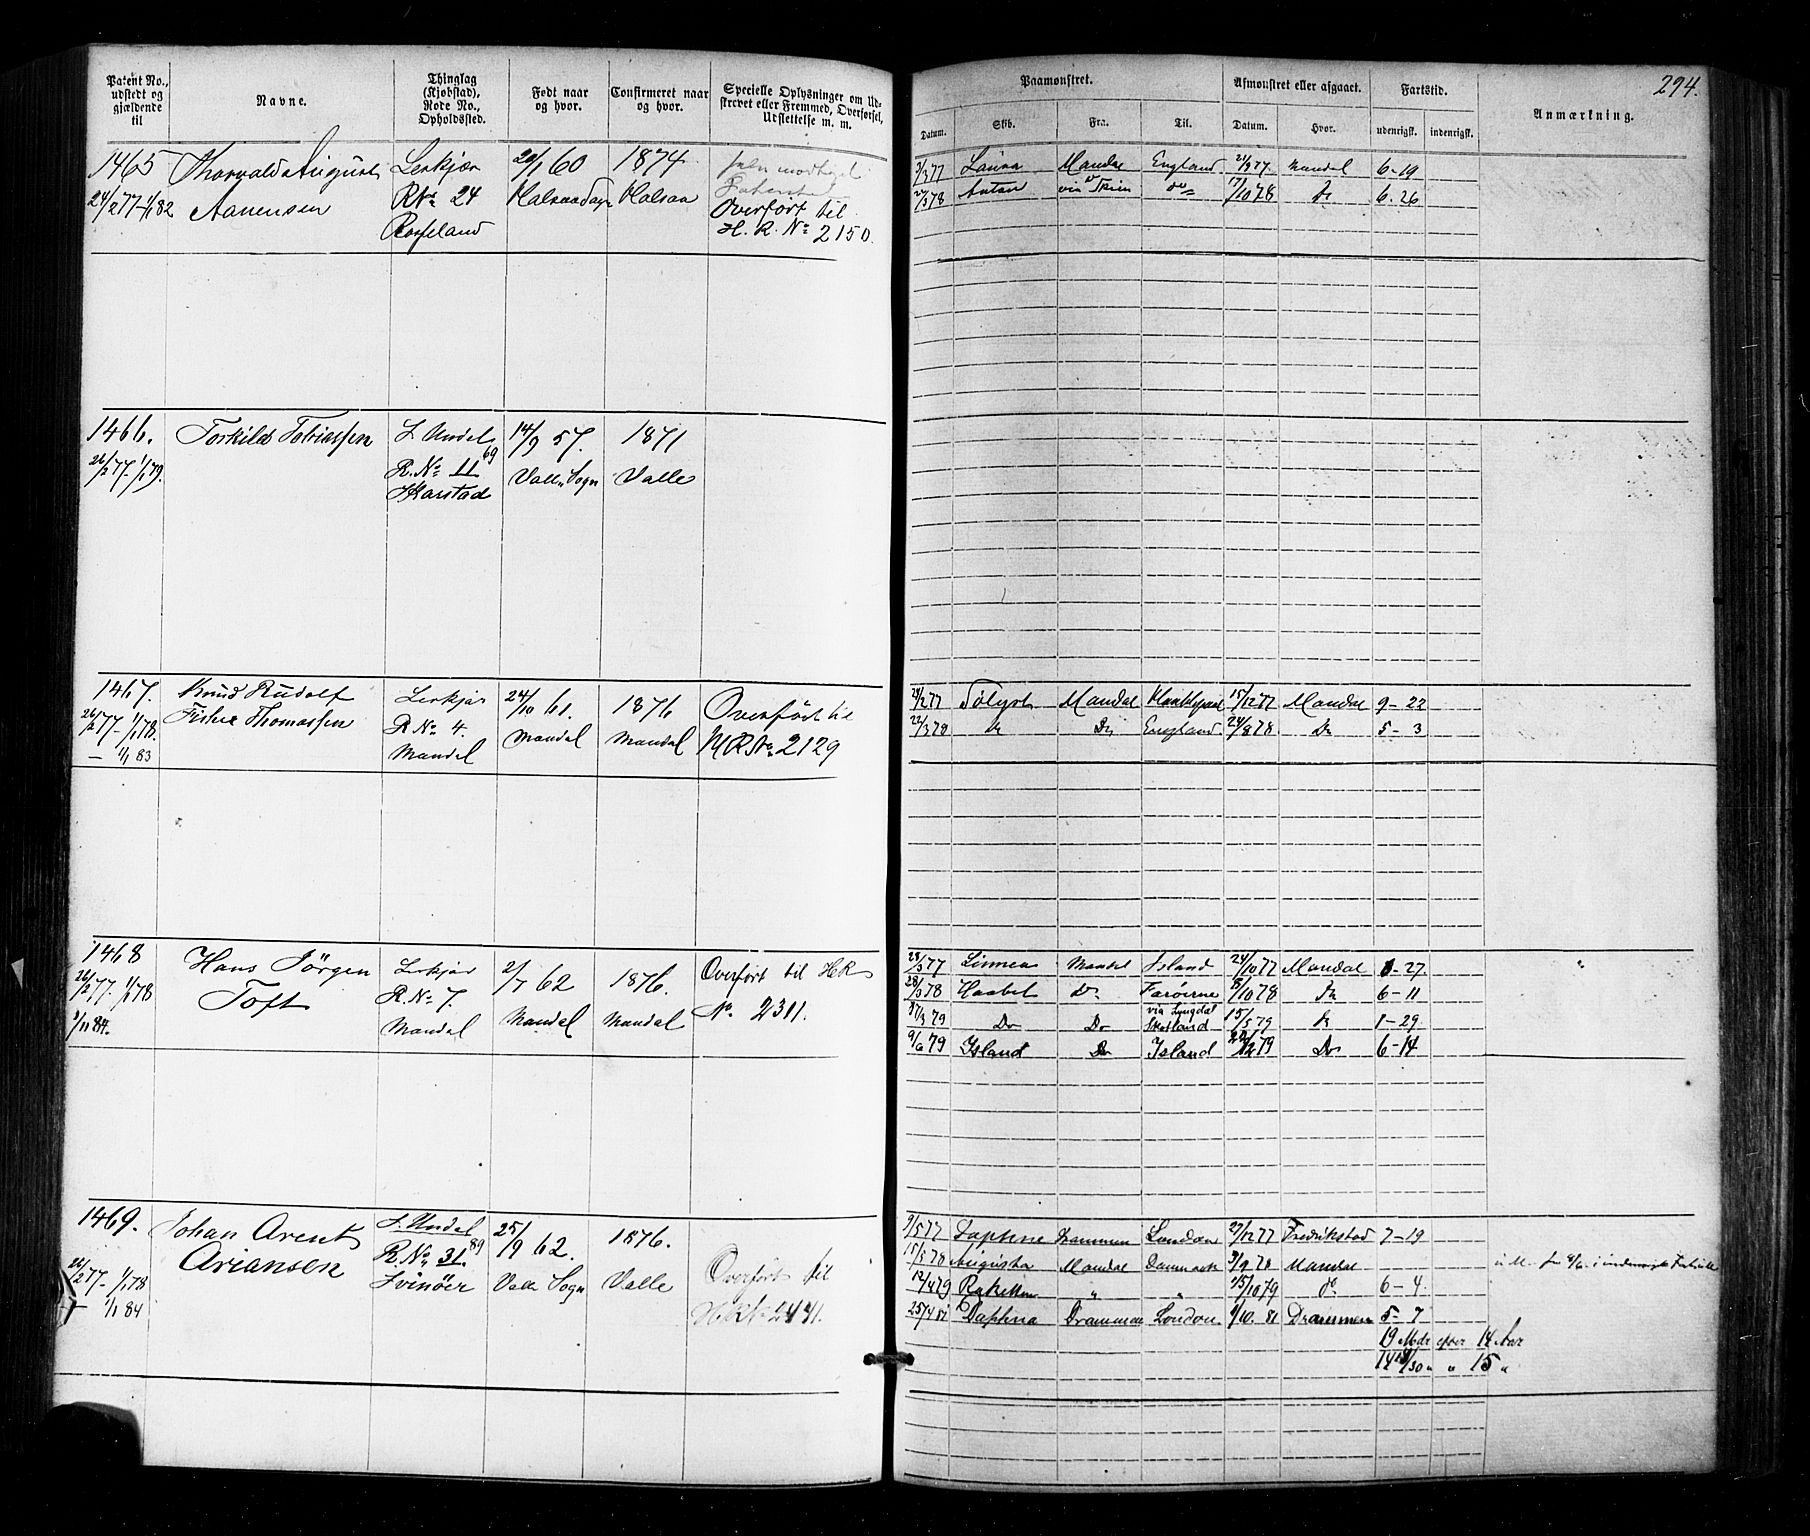 Patent No., udstedt og gjældende til
Navne.
Thinglag (Kjøbstad), Rode No., Opholdssted.
Født naar og hvor.
Confirmeret naar og hvor.
Specielle Oplysninger om Udskrevet eller Fremmed, Overførsel, Udslettelse m. m.
Paamønstret.
Afmønstret eller afgaaet.
Fartstid.
Anmærkning.
294.
Datum.
Skib.
Fra.
Til.
Datum.
Hvor.
udenrigsk.
indenrigsk.
1465 Thorvald August Lerkjær 20/1 60 1874
24/2 77-1/1 82 Aanensen R No 24 Halsaa Sogn Halsaa
Overført til
H. R. No 2150.
3/3 77 Laura Mandal England 21/9 77 Mandal 6-19
22/3 78 Anton via Skien do 17/10 78 Do 6-26
1466. Torkild Tobiassen S. Undal 14/9 57. 1871
26/2 77-1/1 79. R. No 11 69 Valle Sogn Valle
Skarstad
1467. Knud Rudolf Lerkjær 24/10 61. 1876 Overført til
26/2 77-1/1 78. Fisher Thomassen R No 4. Mandal Mandal HR No 2129
— 1/1 83 Mandal
28/2 77 Sølyst Mandal 15/12 77 Mandal 9-22
22/3 78 Do Do England 24/8 78 Do 5-3
1468 Hans Jörgen Lerkjær 2/7 62 1876. Overført til HR
26/2 77-1/1 78 Toft R. No 7. Mandal Mandal No 2311.
1/11 84. Mandal
28/3 77 Linnea Mandal Island 24/10 77 Mandal 6-27
28/3 78 Haabet Do Færöerne 8/10 78 Do 6-11
17/3 79 Do Do via Lyngdal Skotland 15/5 79 Do 1-29
9/6 79 Island Do Island 22/12 79 Do 6-14
1469. Johan Arent S. Undal 25/9 62. 1876.
26/2 77-1/1 78 Ariansen R. No 31. 89 Valle Sogn Valle Overført til
— 1/1 84 Svinöer HR No 2441.
9/5 77 Daphne Drammen London 27/12 77 Fredrikstad 7-19
15/5 78 Augusta Mandal Danmark 3/9 78 Mandal
12/4 79 Raketten " " 15/10 79 do 6-4
25/4 81 Daphne Drammen London 1/10 81 Drammen 5-7
19 Mdr efter 14 Aar
14 19/30 " " 15 "